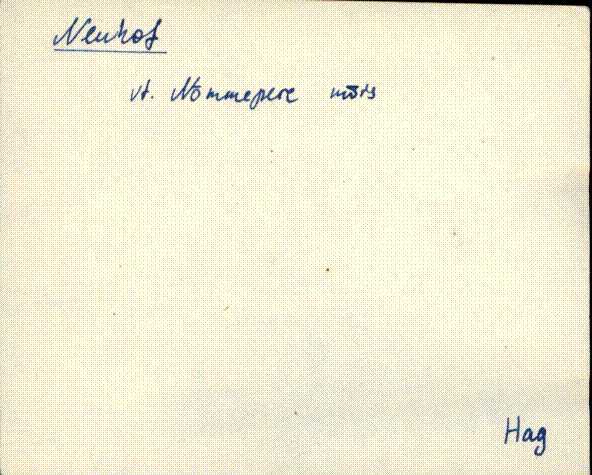 Neuhof
vt. Nõmmepere mõis
Hag